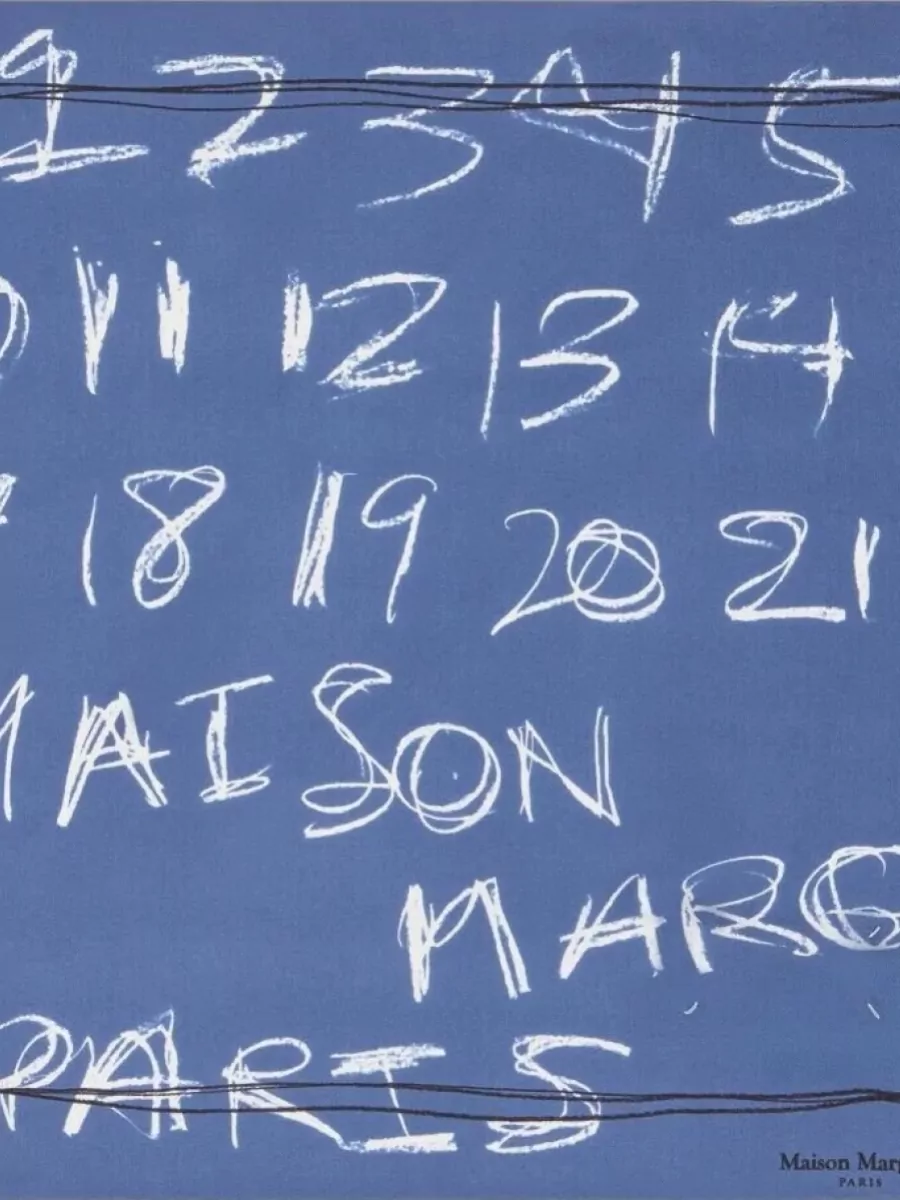 1 2 3 4 5
11 12 13 14
18 19 20 21
MAISON
MARG
PARIS
Maison Marg
PARIS